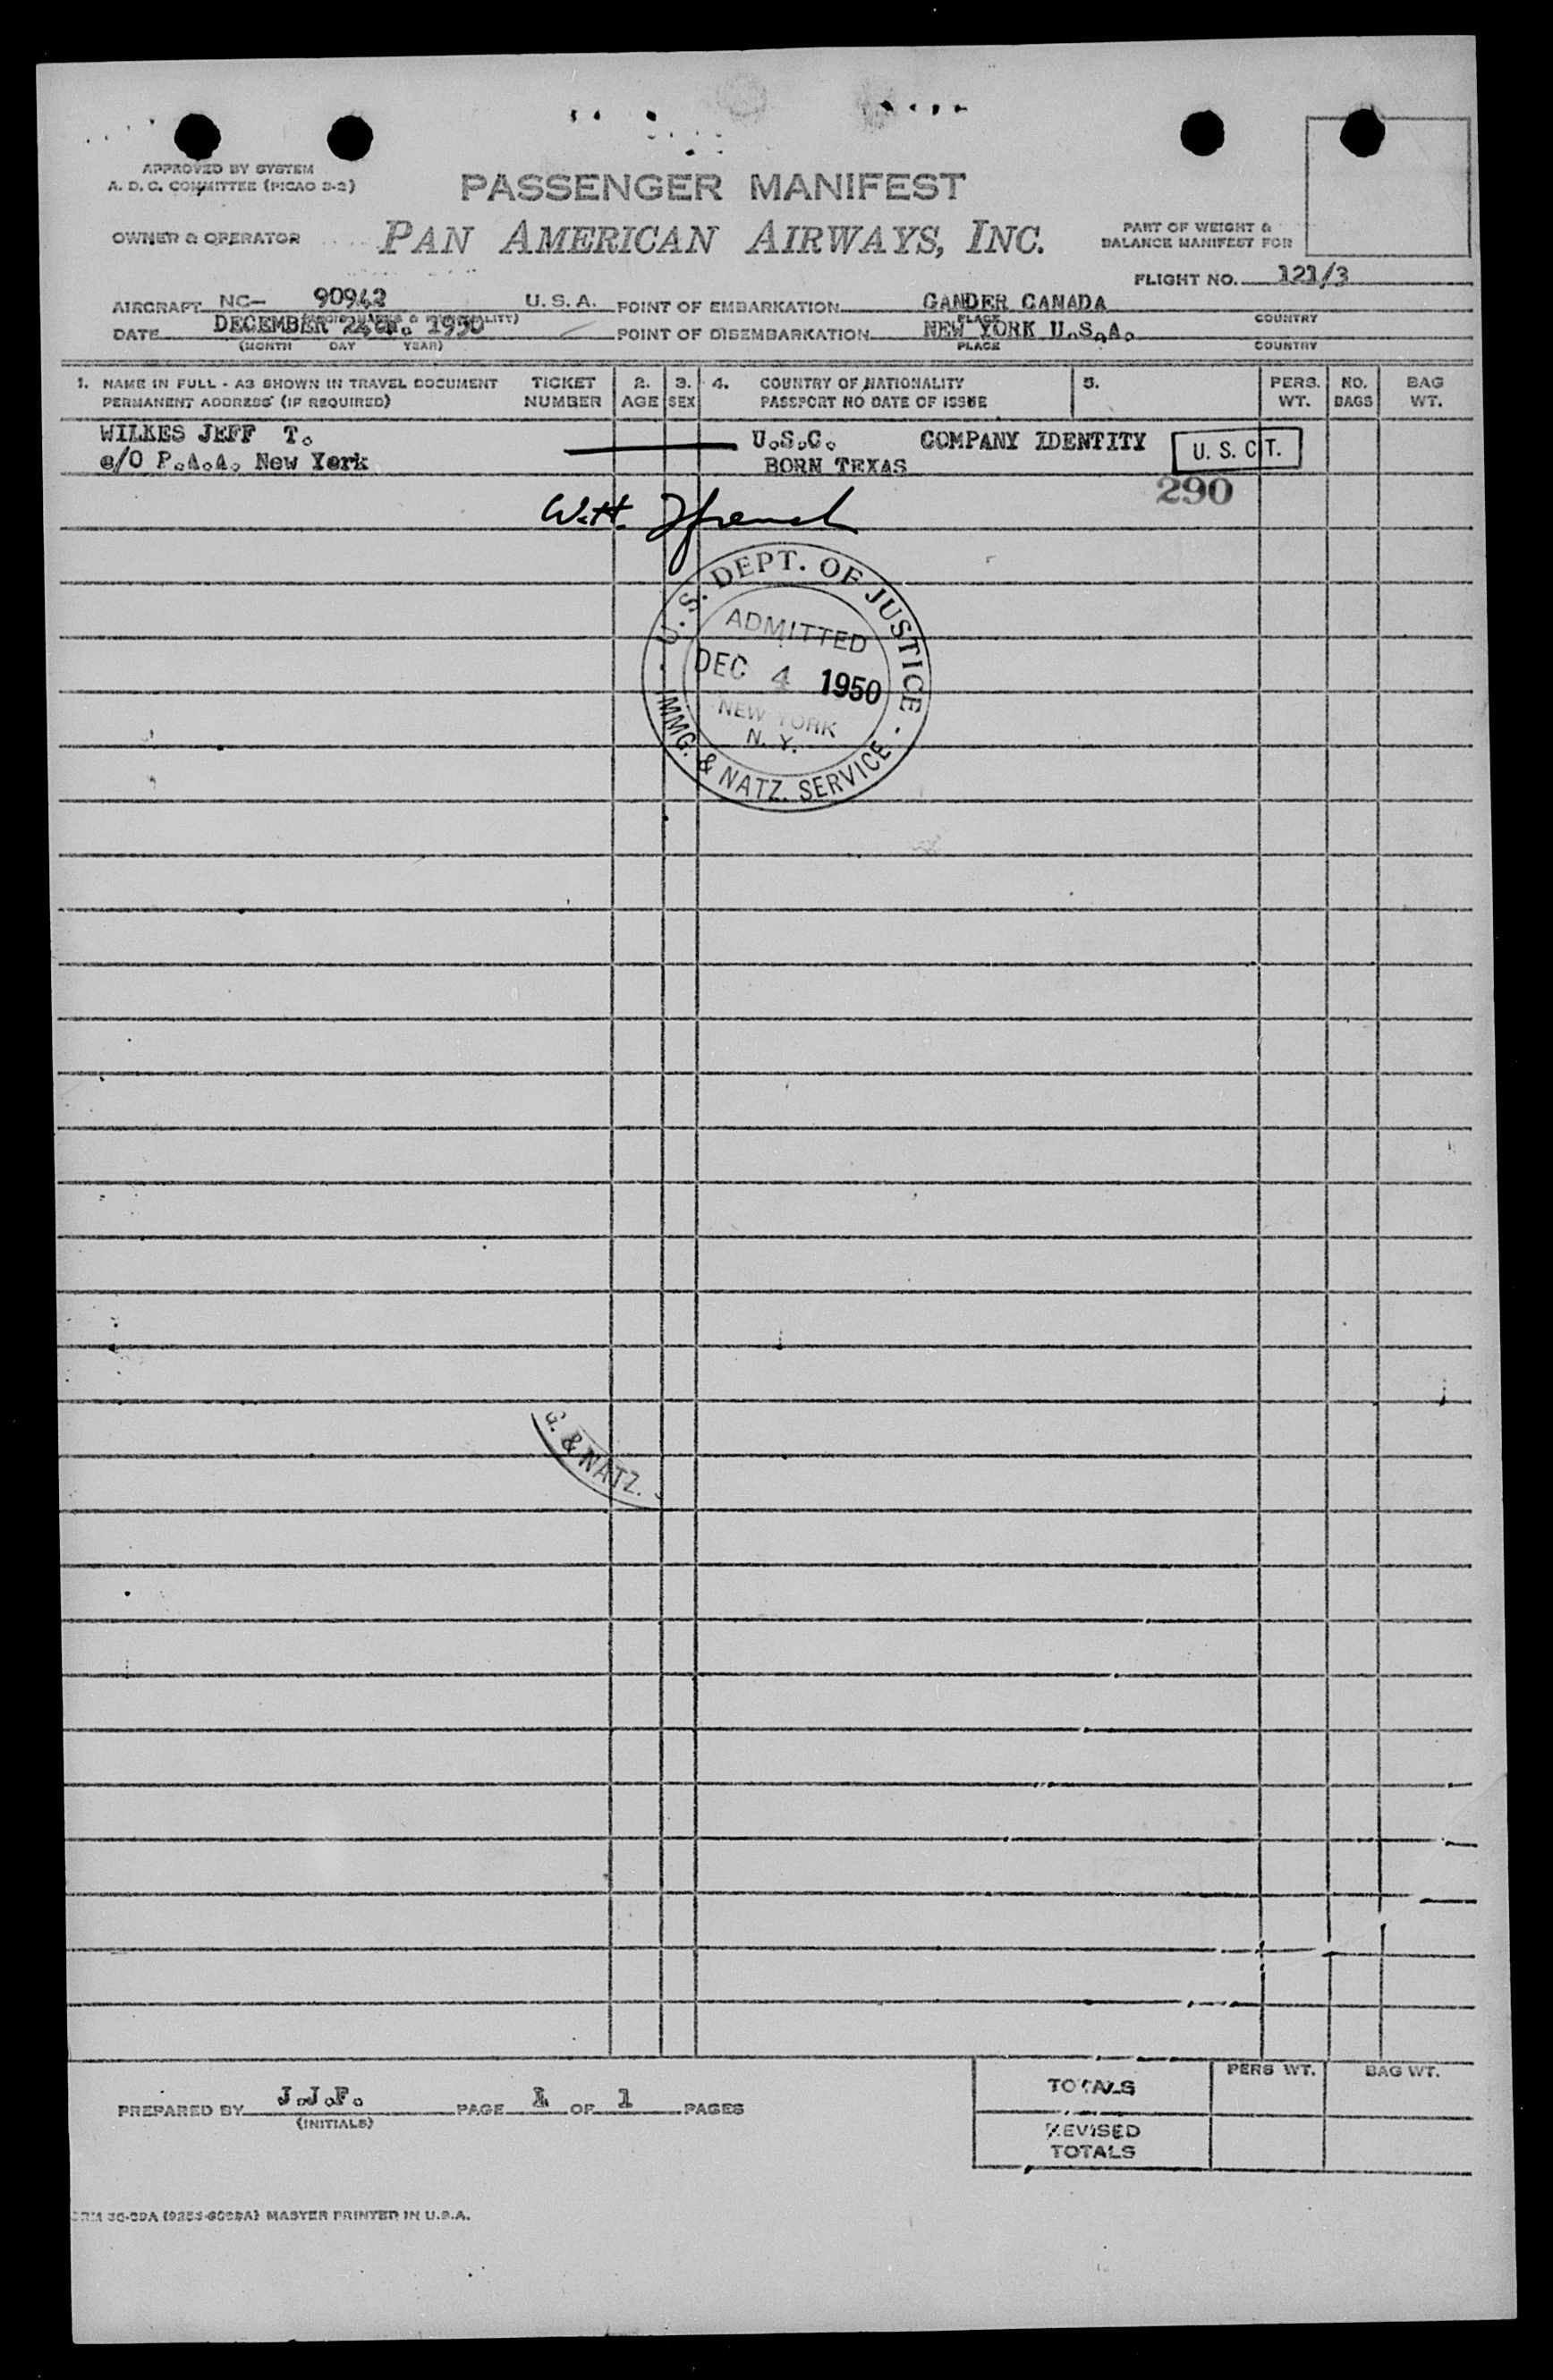 APPROVED BY SYSTEM
A. D. C. COMMITTEE (PICAO 3-2)
PASSENGER MANIFEST
OWNER & OPERATOR
PAN AMERICAN AIRWAYS, INC.
PART OF WEIGHT &
BALANCE MANIFEST FOR
FLIGHT NO. 121/3
AIRCRAFT NC- 90942 U. S. A. POINT OF EMBARKATION GANDER CANADA
PLACE COUNTRY
DATE DECEMBER 1950 POINT OF DISEMBARKATION NEW YORK U.S.A.
(MONTH DAY YEAR) PLACE COUNTRY
1. NAME IN FULL - AS SHOWN IN TRAVEL DOCUMENT TICKET 2. 3. 4. COUNTRY OF NATIONALITY 5. PERS. NO. BAG
PERMANENT ADDRESS (IF REQUIRED) NUMBER AGE SEX PASSPORT NO DATE OF ISSUE WT. BAGS WT.
WILKES JEFF T. U.S.C. COMPANY IDENTITY U. S. CIT.
c/O P.A.A. New York BORN TEXAS
290
W.H. French
U. S. DEPT. OF JUSTICE
ADMITTED
DEC 4 1950
NEW YORK
N. Y.
IMMG. & NATZ. SERVICE
G. & NATZ.
PERS WT. BAG WT.
TOTALS
PREPARED BY J.J.F. PAGE 1 OF 1 PAGES
(INITIALS)
REVISED
TOTALS
MASTER PRINTED IN U.S.A.